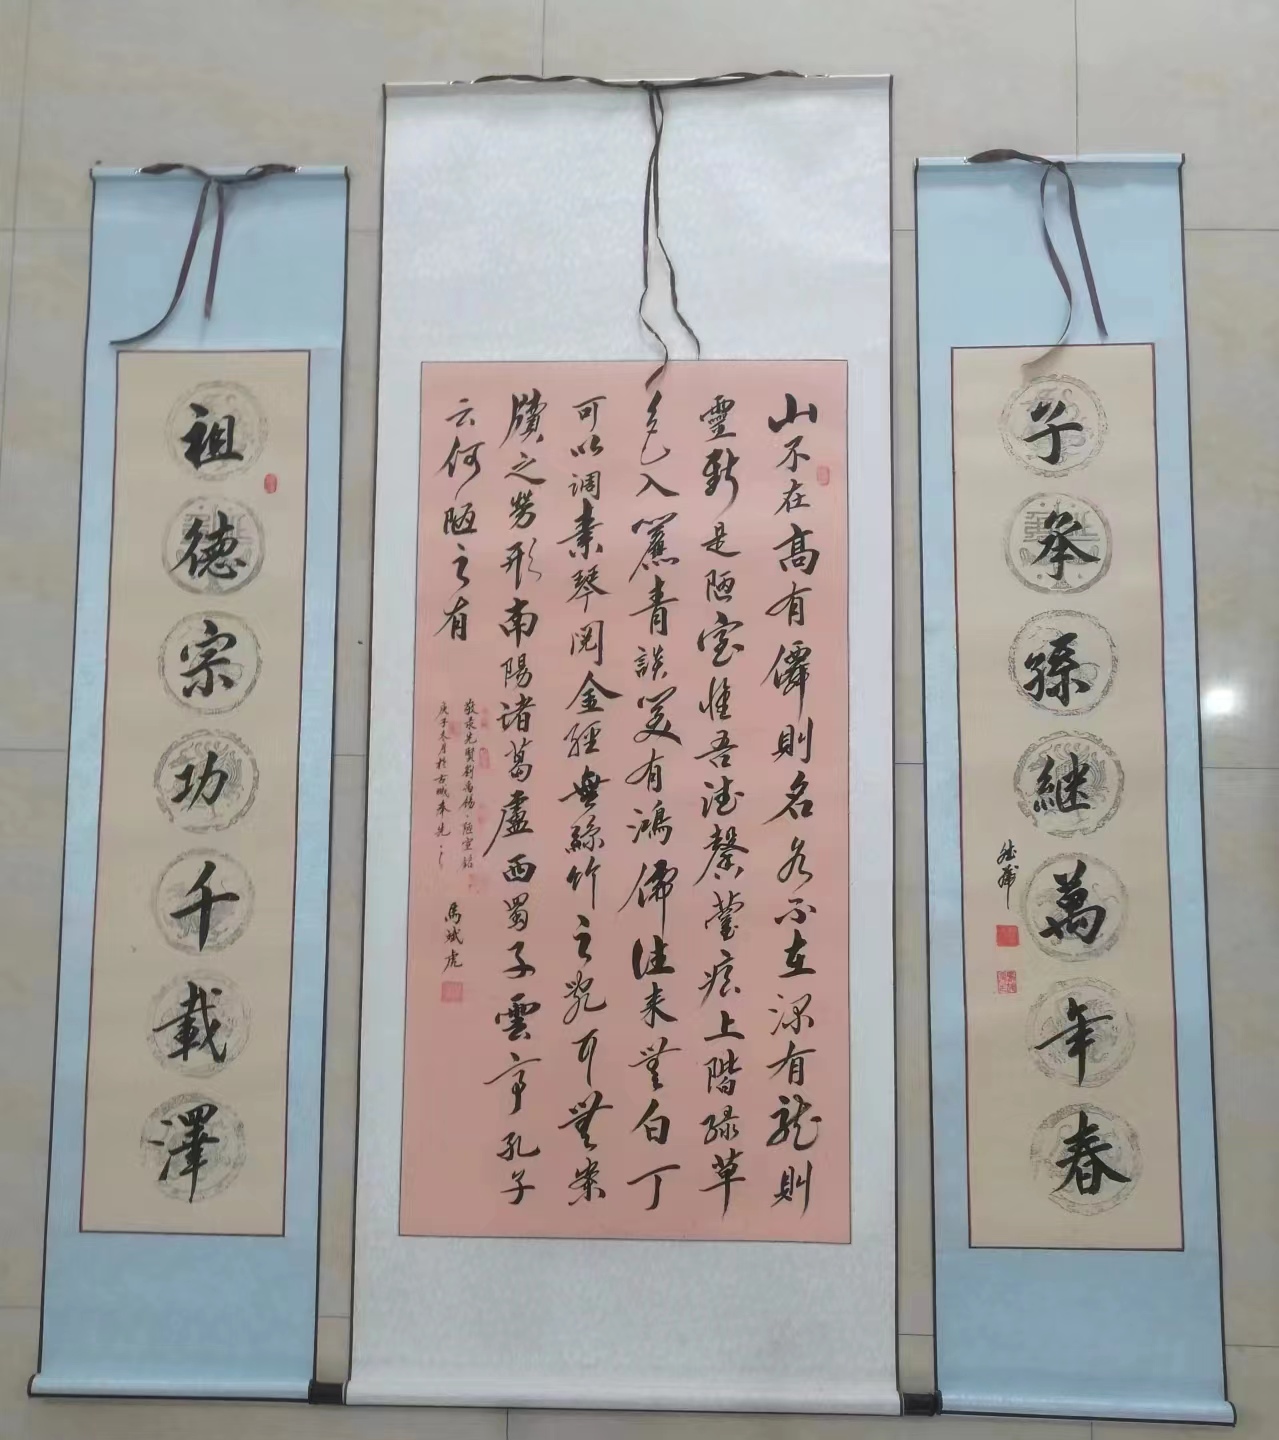 子承孫継萬年春
斌虎
山不在高有僊則名水不在深有龍則
靈斯是陋室惟吾德馨薹痕上階緑草
色入簾青談笑有鴻儒往来無白丁
可以调素琴閱金經無絲竹之乱耳無案
牘之勞形南陽诸葛盧西蜀子雲亭孔子
云何陋之有
敬录先賢劉禹锡·陋室銘
庚子冬月於古城奉先
馬斌虎
祖德宗功千載澤